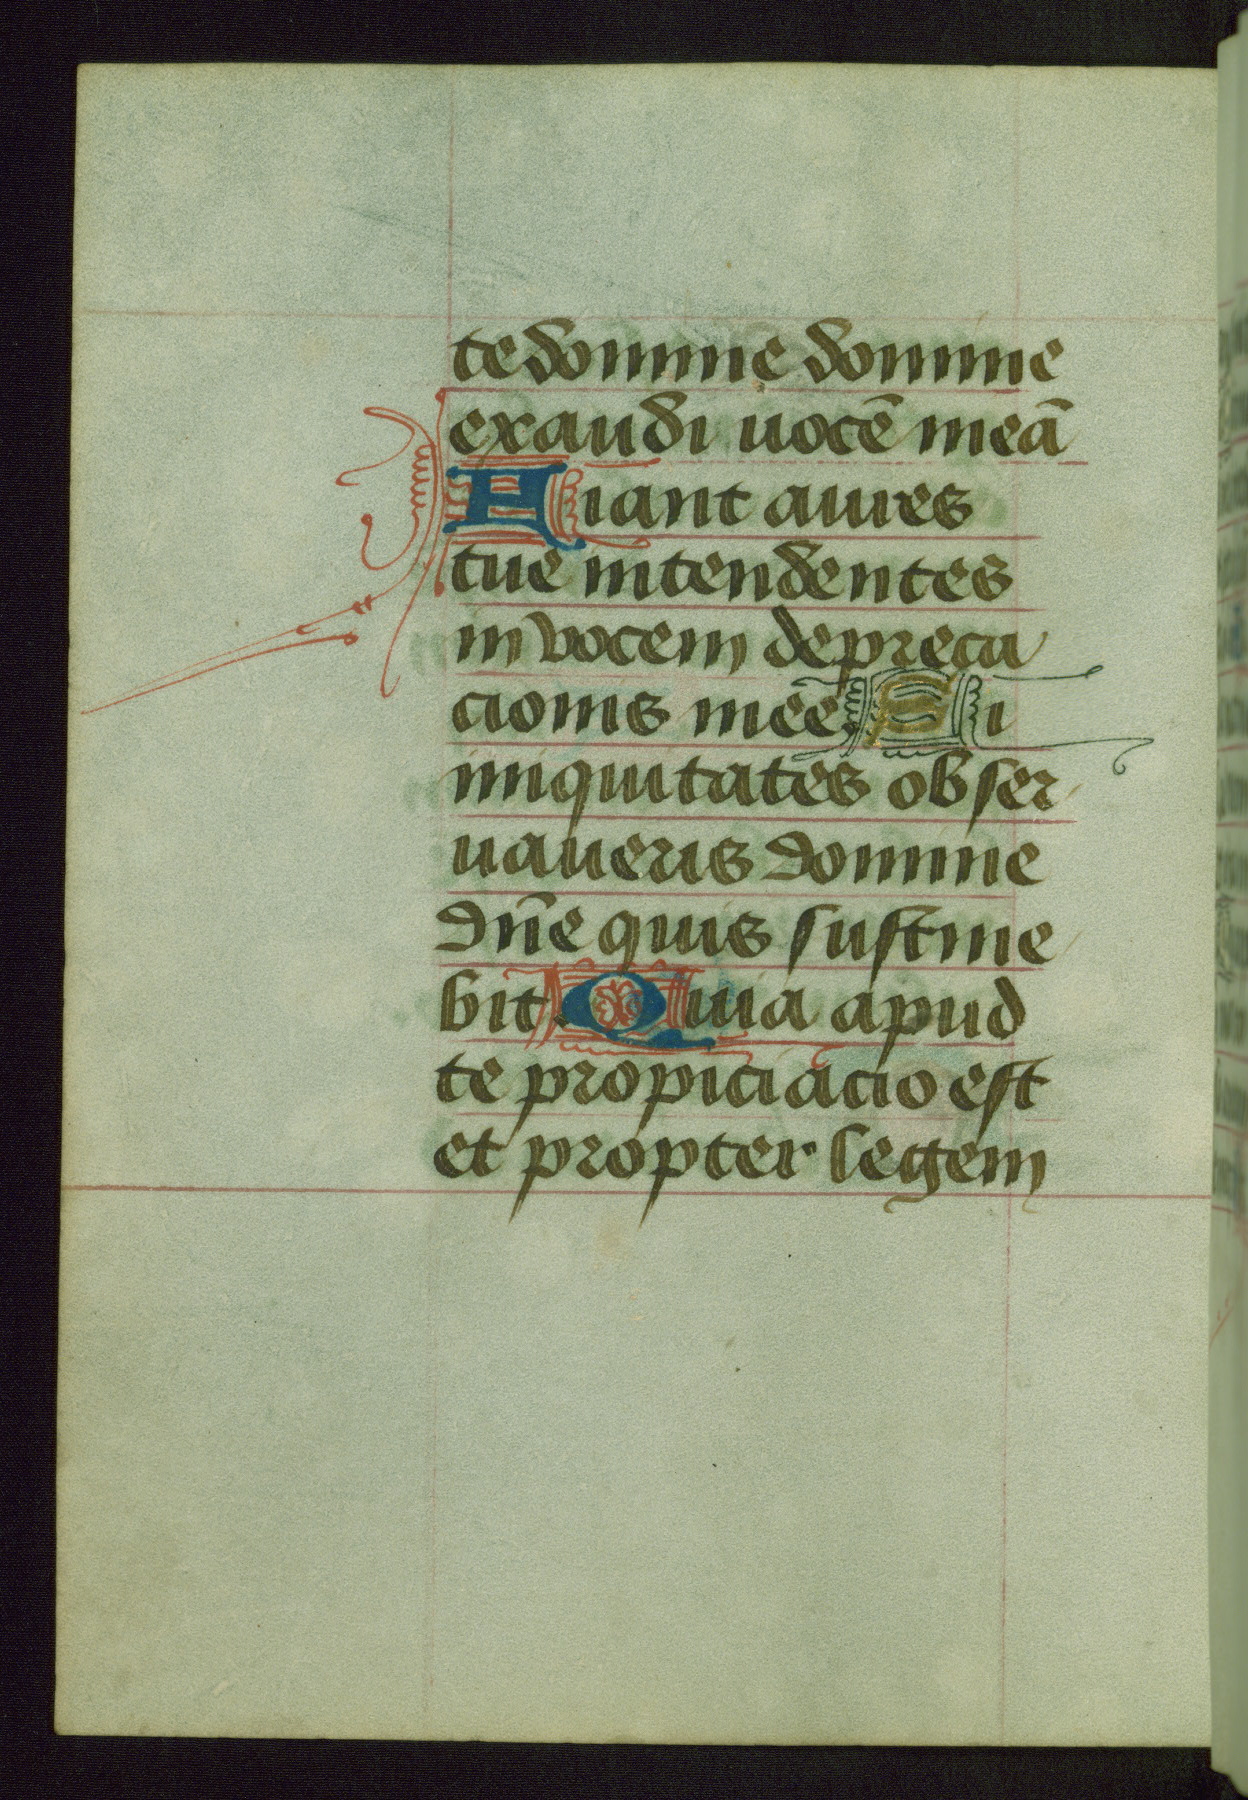 te domine domine
exaudi uocē meā
Fiant aures
tue intendentes
in vocem depreca
cionis mee Si
iniquitates obser
uaueris domine
dn̄e quis sustine
bit. Quia apud
te propiciacio est
et propter legem